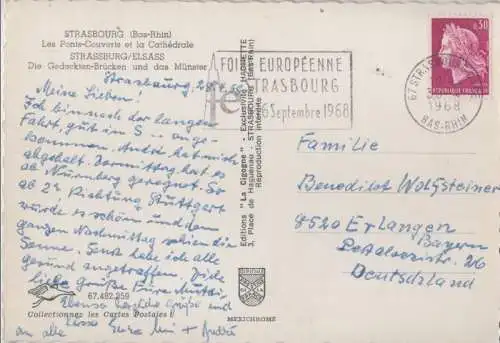 STRASBOURG (Bas-Rhin)
Les Ponts-Couverts et la Cathédrale
STRASSBURG/ELSASS
Die Gedeckten-Brücken und das Münster
Strasbourg, 28.
Meine Lieben!
Ich bin nach der langen
Fahrt gut in S - ange-
kommen. André hat mich
abgeholt. Vormittag hat es
ab Nürnberg geregnet. So
ab 2h Richtung Stuttgart
wurde es schön und den
ganzen Nachmittag schien die
Sonne. Sonst habe ich alle
gesund angetroffen. Viele
liebe Grüße Eure
Ebenso herzliche Grüße und
an alle Eure + André
67.482.259
Collectionnez les Cartes Postales !
Editions "La Cigogne" - Exclusivités HACHETTE
3, Place de Haguenau - STRASBOURG (Bas-Rhin)
Reproduction interdite
MEXICHROME
FOIRE EUROPÉENNE
STRASBOURG
16 Septembre 1968
fe
67 STRASBOURG
1968
BAS-RHIN
0,30
REPUBLIQUE FRANÇAISE
Familie
Benedikt Wolfsteiner
8520 Erlangen
Bayern
Pestalozzistr. 26
Deutschland